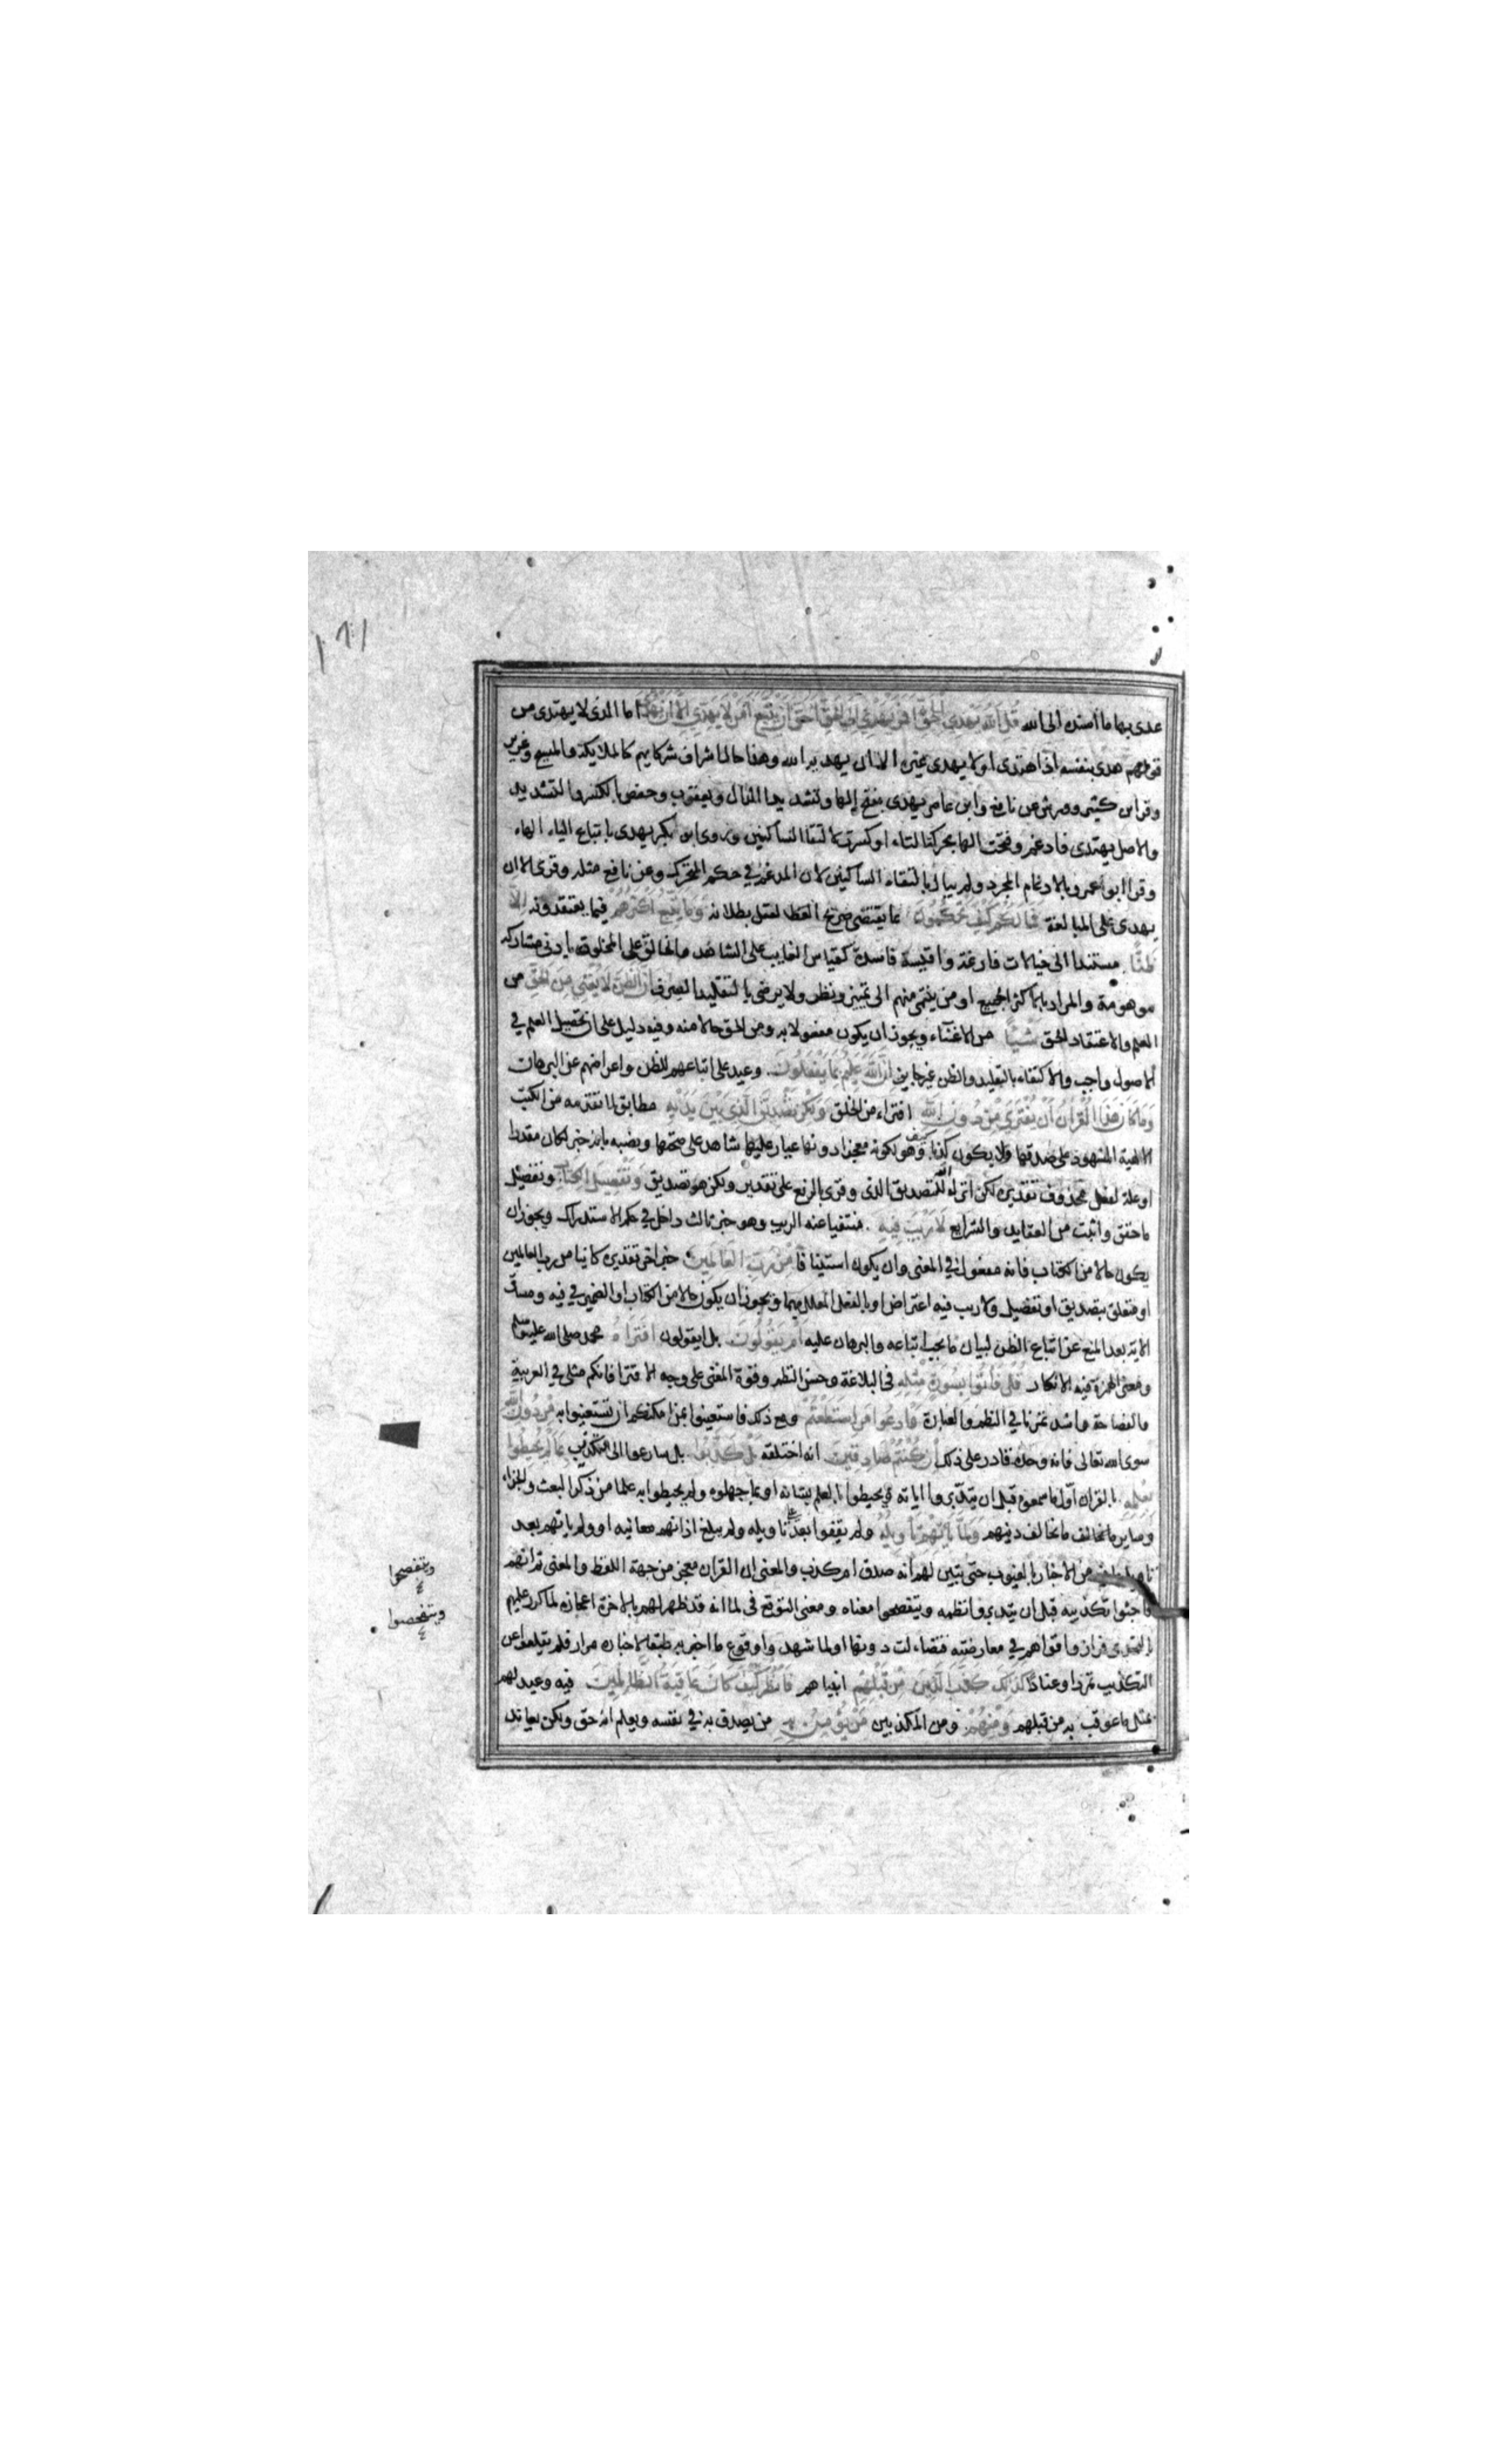 ١٦١
عدى بهما ما أسند الى الله قُلِ اللَّهُ يَهْدِي لِلْحَقِّ أَفَمَنْ يَهْدِي إِلَى الْحَقِّ أَحَقُّ أَنْ يُتَّبَعَ أَمَّنْ لَا يَهِدِّي إِلَّا أَنْ يُهْدَى اما الذى لا يهتدى من
قولهم هدى بنفسه اذا اهتدى او لا يهدى غيره الا ان يهديه الله وهذا حال اشراف شركايهم كالملايكة والمسيح وعزير
وقرا ابن كثير وورش عن نافع وابن عامر يهدى بفتح الها وتشديد الدال ويعقوب وحفص بالكسر والتشديد
والاصل يهتدى فادغم وفتحت الها بحركة التاء او كسرت لالتقا الساكنين وروى ابو بكر يهدى باتباع الياء الهاء
وقرا ابو عمرو بالادغام المجرد ولم يبال بالتقاء الساكنين لان المدغم في حكم المتحرك وعن نافع مثله وقرى الا ان
يهدى على المبالغة فَمَا لَكُمْ كَيْفَ تَحْكُمُونَ بما يقتضى صريح العقل بطلانه وَمَا يَتَّبِعُ أَكْثَرُهُمْ فيما يعتقدونه إِلَّا
ظَنًّا مستندا الى خيالات فارغة واقيسة فاسدة كقياس الغايب على الشاهد والخالق على المخلوق بادنى مشاركه
موهومة والمراد بالاكثر الجميع او من ينتمى منهم الى تمييز ونظر ولا يرضى بالتقليد الصرف إِنَّ الظَّنَّ لَا يُغْنِي مِنَ الْحَقِّ من
العلم والاعتقاد الحق شَيْئًا من الاغناء ويجوز ان يكون مفعولا به ومن الحق حالا منه وفيه دليل على ان تحصيل العلم في
الاصول واجب والاكتفاء بالتقليد والظن غير جايز إِنَّ اللَّهَ عَلِيمٌ بِمَا يَفْعَلُونَ وعيد على اتباعهم للظن واعراضهم عن البرهان
وَمَا كَانَ هَذَا الْقُرْآنُ أَنْ يُفْتَرَى مِنْ دُونِ اللَّهِ افتراء من الخلق وَلَكِنْ تَصْدِيقَ الَّذِي بَيْنَ يَدَيْهِ مطابق لما تقدمه من الكتب
الالهية المشهود على صدقها ولا يكون كذبا كيف وهو لكونه معجزا دونها عيار عليها شاهد على صحتها ونصبه بانه خبر لكان مقدرا
او علة لفعل محذوف تقديره لكن انزله الله لتصديق الذى وقرى بالرفع على تقدير ولكن هو تصديق وَتَفْصِيلَ الْكِتَابِ وتفصيل
ما حقق واثبت من العقايد والشرايع لَا رَيْبَ فِيهِ منتفيا عنه الريب وهو خبر ثالث داخل في حكم الاستدراك ويجوز ان
يكون حالا من الكتاب فانه مفعول في المعنى وان يكون استينافا مِنْ رَبِّ الْعَالَمِينَ خبر اخر تقديره كاينا من رب العالمين
او متعلق بتصديق او تفصيل ولا ريب فيه اعتراض او بالفعل المعلل بهما ويجوز ان يكون حالا من الكتاب او الضمير في فيه ومساق
الاية بعد المنع عن اتباع الظن لبيان ما يجب اتباعه والبرهان عليه أَمْ يَقُولُونَ بل ايقولون افْتَرَاهُ محمد صلى الله عليه وسلم
ومعنى الهمزة فيه الانكار قُلْ فَأْتُوا بِسُورَةٍ مِثْلِهِ في البلاغة وحسن النظم وقوة المعنى على وجه الافترا فانكم مثلى في العربية
والفصاحة واشد تمرنا في النظم والعبارة وَادْعُوا مَنِ اسْتَطَعْتُمْ ومع ذلك فاستعينوا بمن امكنكم ان تستعينوا به مِنْ دُونِ اللَّهِ
سوى الله تعالى فانه وحده قادر على ذلك إِنْ كُنْتُمْ صَادِقِينَ انه اختلقه بَلْ كَذَّبُوا بل سارعوا الى التكذيب بِمَا لَمْ يُحِيطُوا
بِعِلْمِهِ بالقران اول ما سمعوه قبل ان يتدبروا اياته ويحيطوا بالعلم بشانه او بما جهلوه ولم يحيطوا به علما من ذكر البعث والجزاء
وساير ما يخالف دينهم وَلَمَّا يَأْتِهِمْ تَأْوِيلُهُ ولم يقفوا بعد على تاويله ولم يبلغ اذانهم معانيه او ولم ياتهم بعد
تاويل ما فيه من الاخبار بالغيوب حتى يتبين لهم انه صدق ام كذب والمعنى ان القران معجز من جهة اللفظ والمعنى ثم انهم
فاجئوا تكذيبه قبل ان يتدبروا نظمه ويتفصحوا معناه ومعنى التوقع في لما انه قد ظهر لهم بالاخرة اعجازه لما كرر عليهم
التحدى فرازوا قواهم في معارضته فتضاءلت دونها او لما شهدوا وقوع ما اخبر به طبقا لاخباره مرارا فلم يقلعوا عن
التكذيب تمردا وعنادا كَذَلِكَ كَذَّبَ الَّذِينَ مِنْ قَبْلِهِمْ انبياهم فَانْظُرْ كَيْفَ كَانَ عَاقِبَةُ الظَّالِمِينَ فيه وعيد لهم
بمثل ما عوقب به من قبلهم وَمِنْهُمْ ومن المكذبين مَنْ يُؤْمِنُ بِهِ من يصدق به في نفسه ويعلم انه حق ولكن يعاند
ويتفصحوا
ويتفحصوا